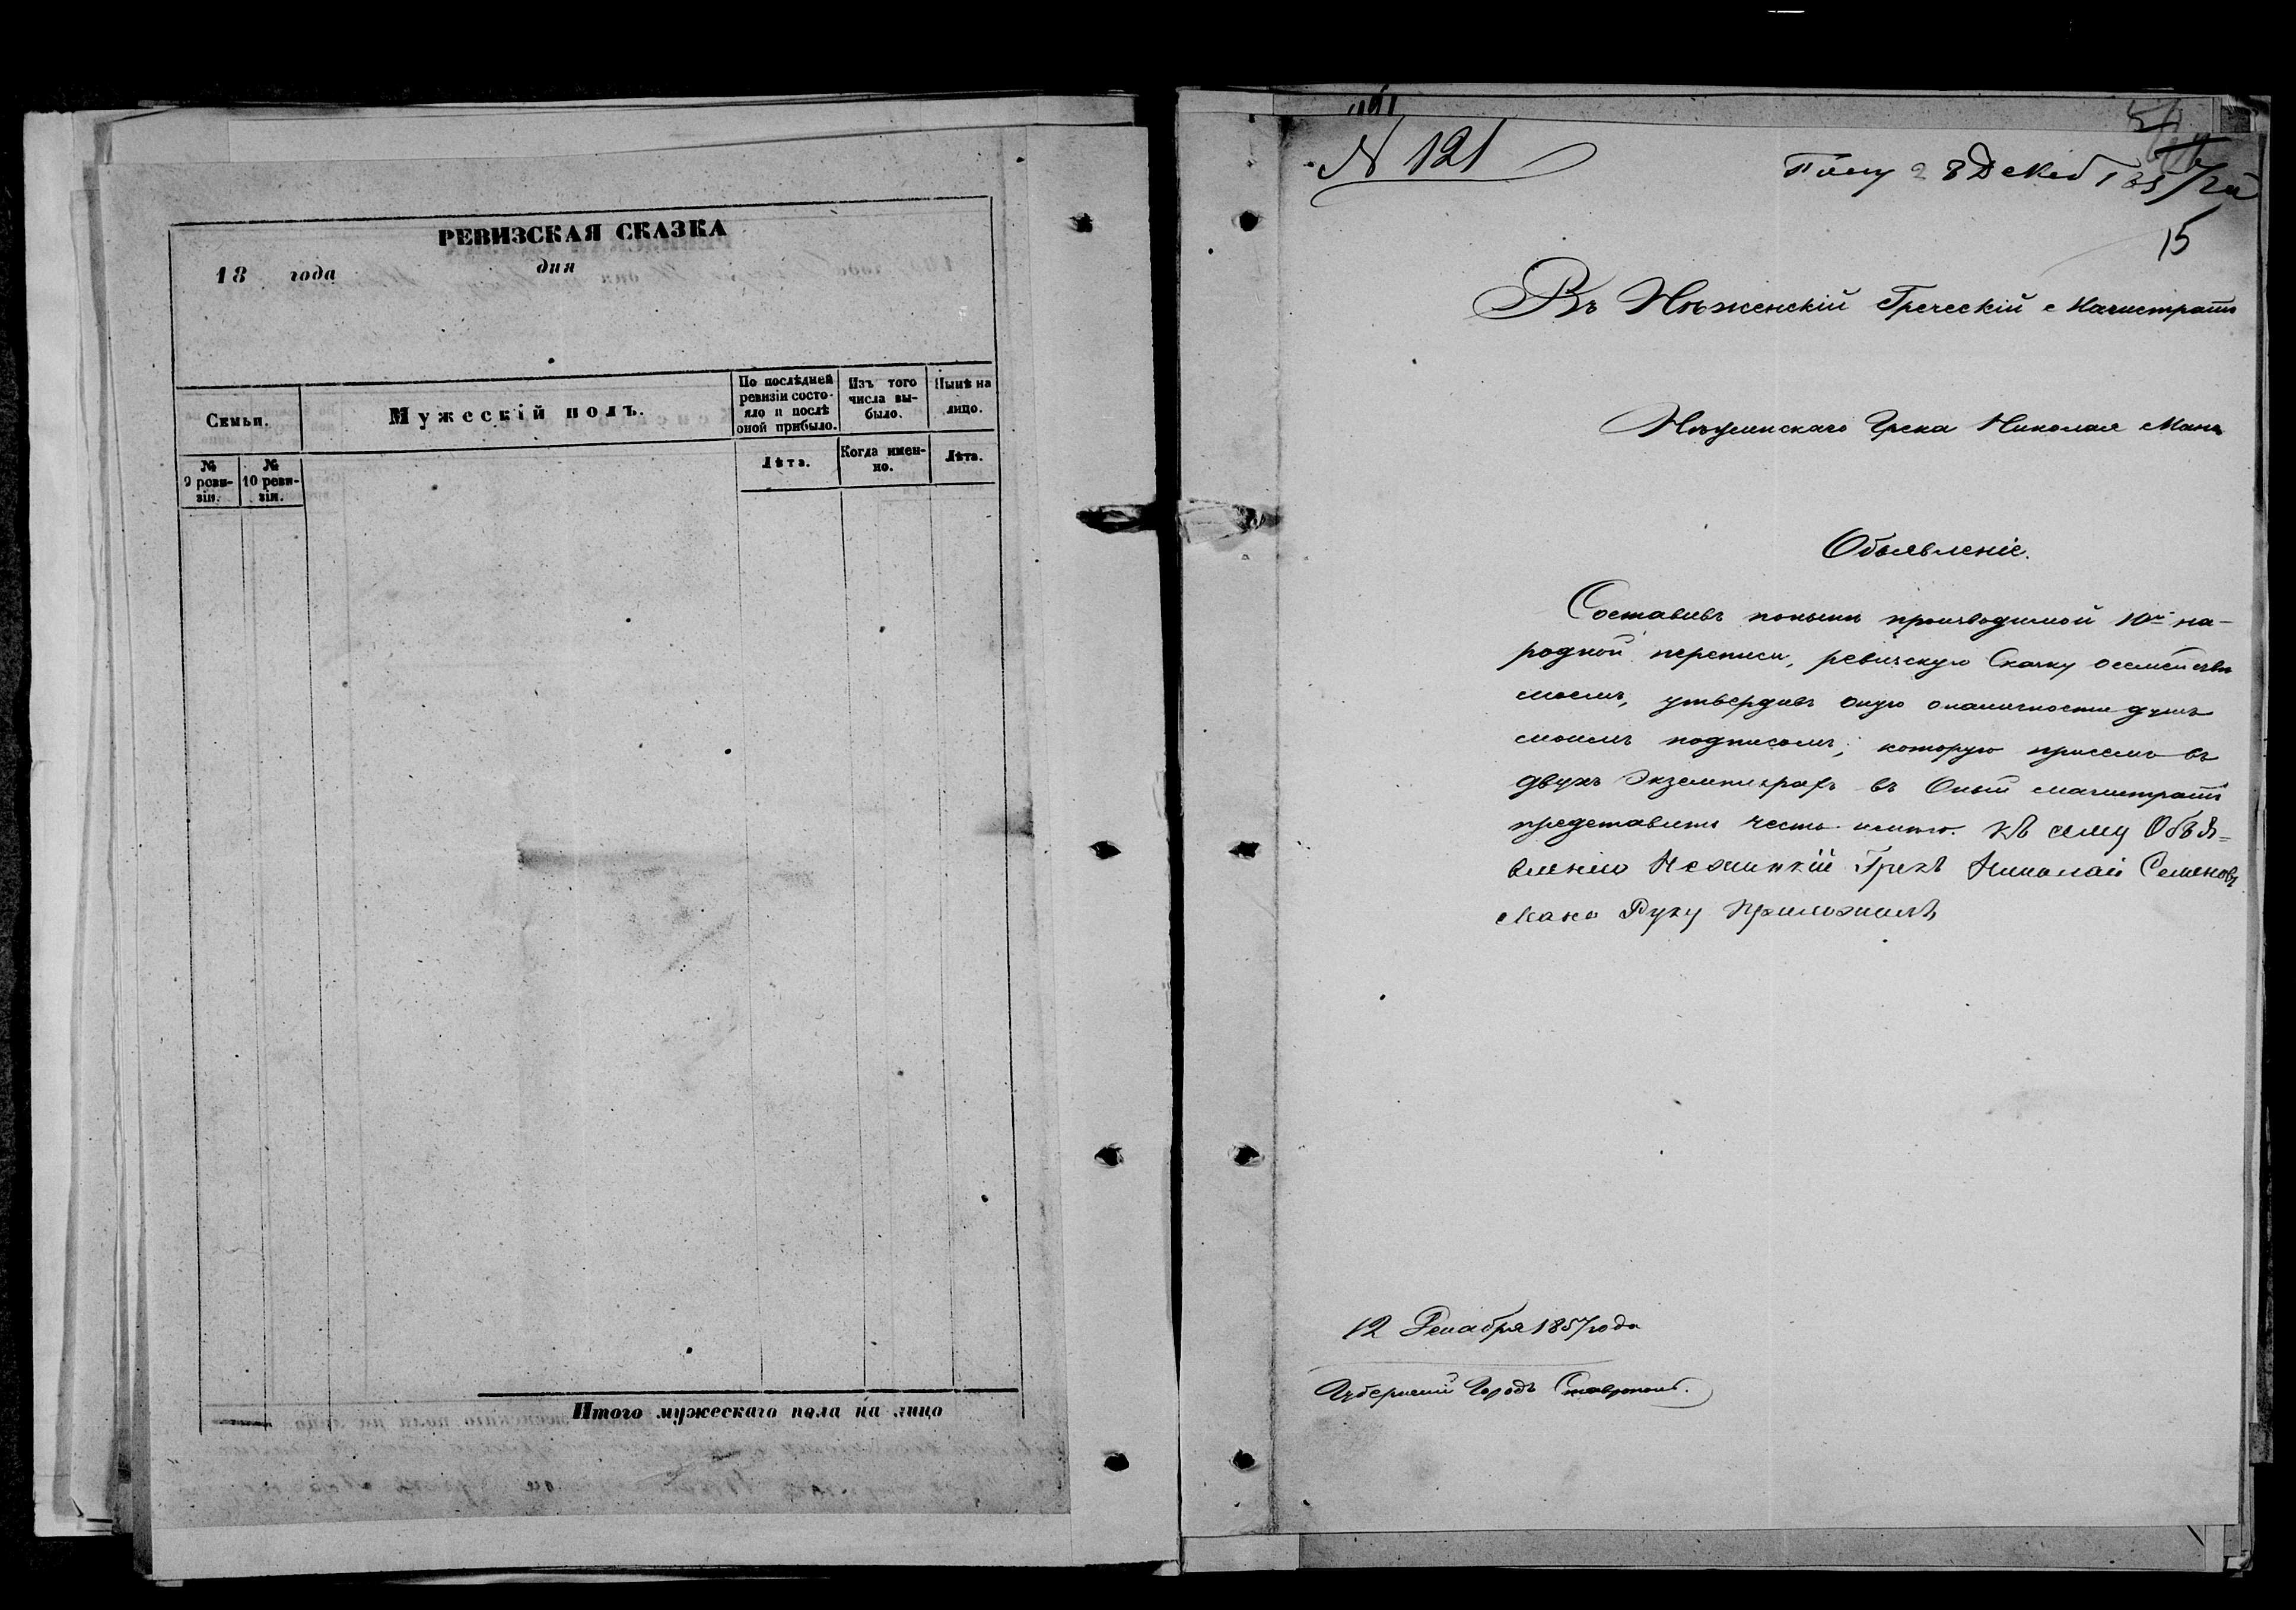 РЕВИЗСКАЯ СКАЗКА
18 года дня
Семьи.
Мужескій полъ.
По послѣдней ревизіи состояло и послѣ оной прибыло.
Изъ того числа выбыло.
Нынѣ на лицо.
№ 9 ревизіи.
№ 10 ревизіи.
Лѣта.
Когда именно.
Лѣта.
Итого мужескаго пола на лицо
№ 121
15
Въ Нѣженскій Греческій Магистратъ
Грека Николая Мано
Объявленіе.
Составивъ понынѣ производимой 10й на-
родной переписи, ревизскую Сказку о семействѣ
моемъ, утвердивъ оную о наличности душъ
моимъ подписомъ, которую при семъ въ
двухъ экземплярахъ въ Оный магистратъ
представить честь имѣю. Къ сему Объя=
вленію Грекъ Николай Семеновъ
Мано Руку Приложилъ
12 Декабря 1857 года
Губернскій Городъ Ставрополь.